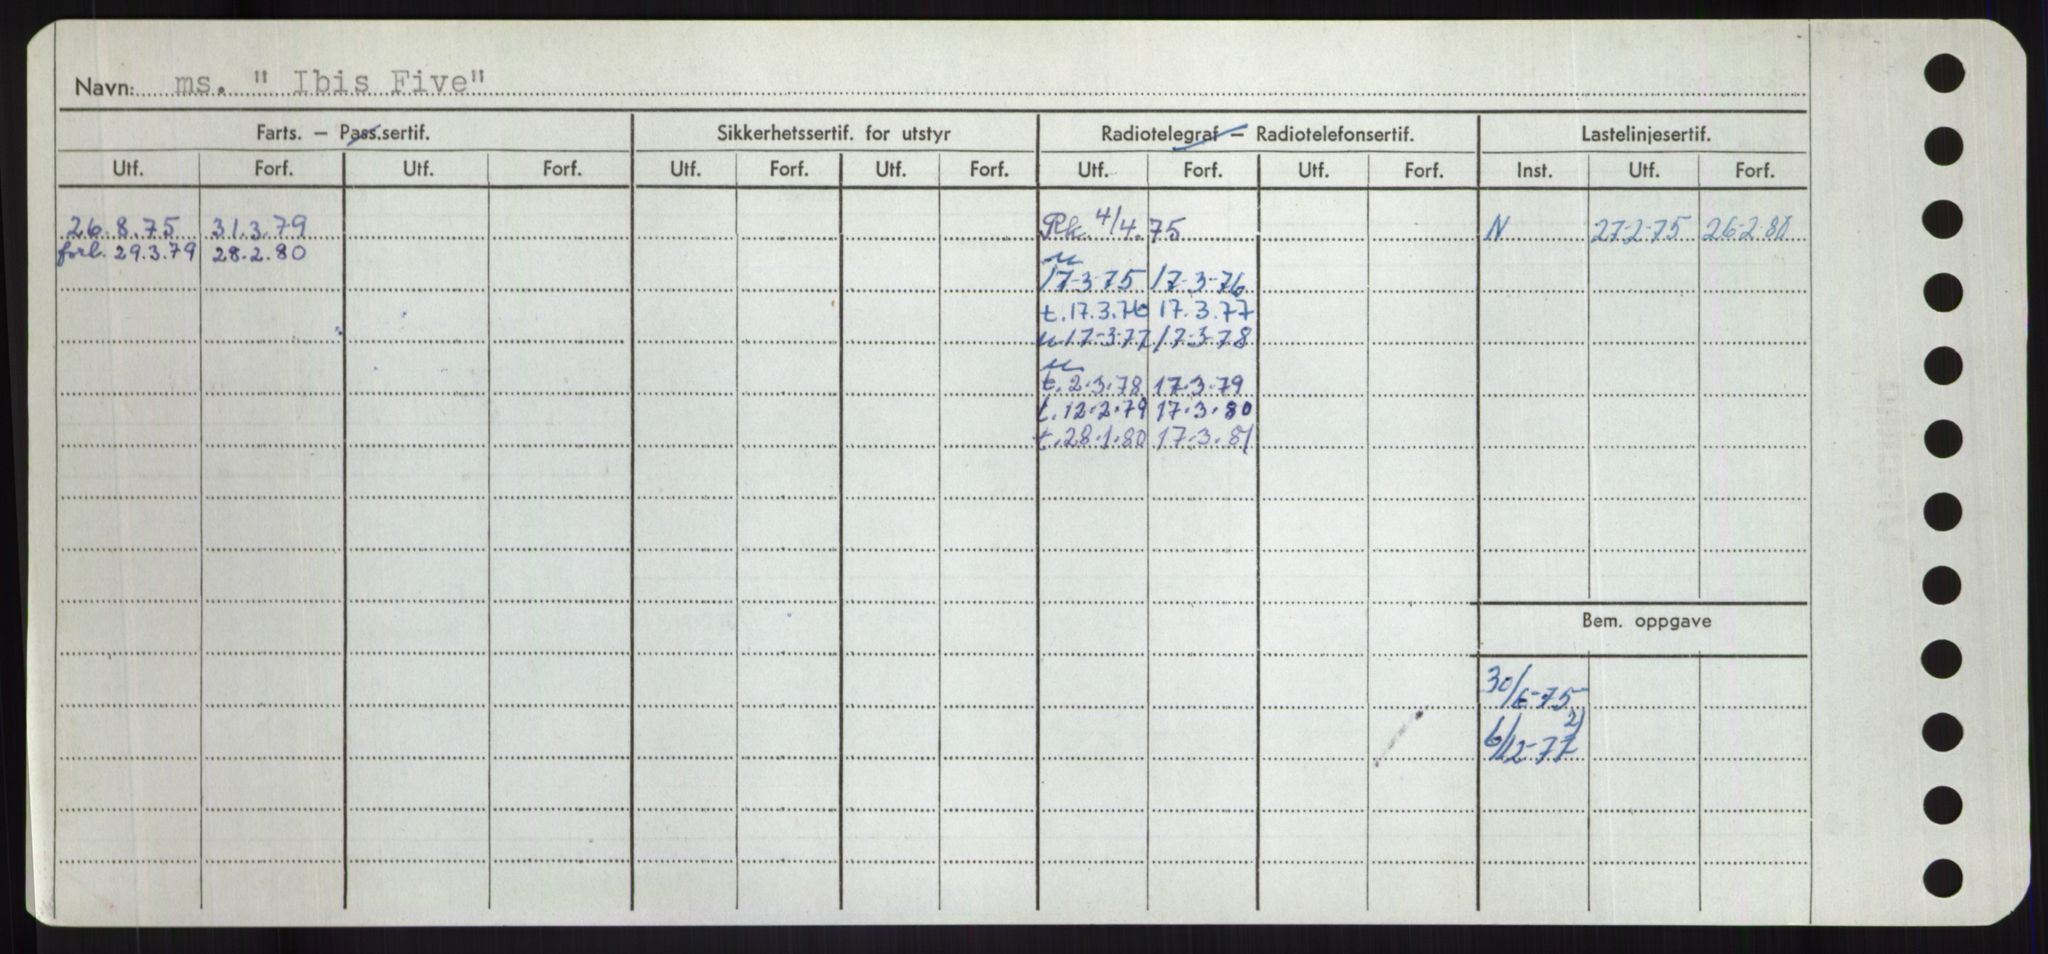 Navn: ms. " Ibis Five"
Farts. – Pass.sertif. Sikkerhetssertif. for utstyr Radiotelegraf – Radiotelefonsertif. Lastelinjesertif.
Utf. Forf. Utf. Forf. Utf. Forf. Utf. Forf. Utf. Forf. Utf. Forf. Inst. Utf. Forf.
26.8.75 31.3.79 Rk. 4/4.75 N 27-2-75 26-2-80
forl. 29.3.79 28.2.80
17-3-75 17-3-76
t.17.3.76 17.3.77
17-3-77 17-3-78
t.2.3.78 17.3.79
t.12.2.79 17.3.80
t.28.1.80 17.3.81
Bem. oppgave
30/6-75
6/12-77 2)